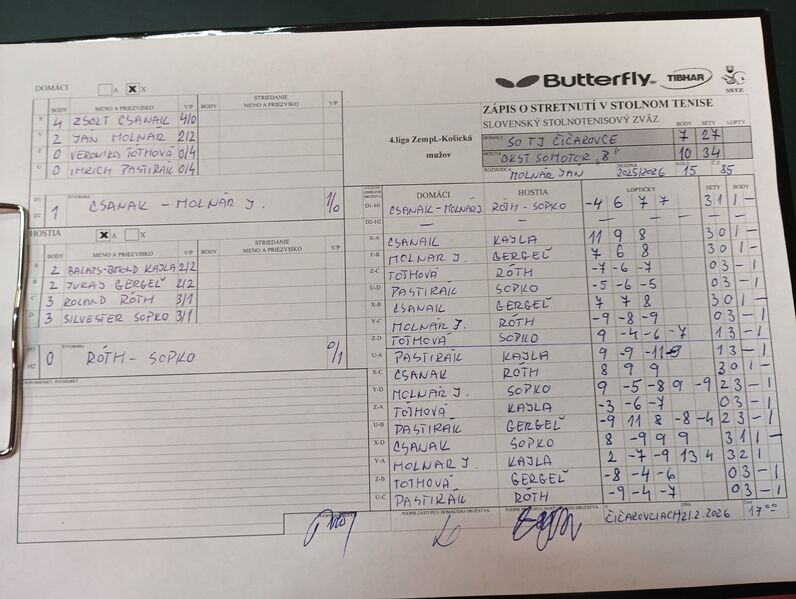 Butterfly
TIBHAR
SSTZ
DOMÁCI A X X
STRIEDANIE
BODY MENO A PRIEZVISKO V/P BODY MENO A PRIEZVISKO V/P
X 4 ZSOLT CSANAIK 4/0
Y 2 JÁN MOLNÁR 2/2
Z 0 VERONIKA TÓTHOVÁ 0/4
U 0 IMRICH PASTIRÁK 0/4
D1 D2 1 ŠTVORHRA CSANAK - MOLNÁR J. 1/0
HOSTIA X X
STRIEDANIE
BODY MENO A PRIEZVISKO V/P BODY MENO A PRIEZVISKO V/P
A 2 BALAZS-BOTOND KAJLA 2/2
B 2 JURAJ GERGEĽ 2/2
C 3 ROLAND RÓTH 3/1
D 3 SILVESTER SOPKO 3/1
H1 H2 0 ŠTVORHRA RÓTH - SOPKO 0/1
PRIPOMIENKY, POZNÁMKY
4.liga Zempl.-Košická
mužov
ZÁPIS O STRETNUTÍ V STOLNOM TENISE
SLOVENSKÝ STOLNOTENISOVÝ ZVÄZ BODY SETY LOPTY
DOMÁCI SO TJ ČIČAROVCE 7 27
HOSTIA OKST SOMOTOR "B" 10 34
ROZHODCA MOLNÁR JÁN SEZÓNA 2025/2026 KOLO 15 Č.Z. 85
DOMÁCI HOSTIA LOPTIČKY SETY BODY
D1-H1 CSANAIK-MOLNÁR J. RÓTH-SOPKO -4 6 7 7 3 1 1 -
D2-H2 — — — — —
X-A CSANAIK KAJLA 11 9 8 3 0 1 -
Y-B MOLNÁR J. GERGEĽ 7 6 8 3 0 1 -
Z-C TÓTHOVÁ RÓTH -7 -6 -7 0 3 - 1
U-D PASTIRÁK SOPKO -5 -6 -5 0 3 - 1
X-B CSANAK GERGEĽ 7 7 8 3 0 1 -
Y-C MOLNÁR J. RÓTH -9 -8 -9 0 3 - 1
Z-D TÓTHOVÁ SOPKO 9 -4 -6 -7 1 3 - 1
U-A PASTIRÁK KAJLA 9 -9 -11 1 3 - 1
X-C CSANAK RÓTH 8 9 9 3 0 1 -
Y-D MOLNÁR J. SOPKO 9 -5 -8 9 -9 2 3 - 1
Z-A TÓTHOVÁ KAJLA -3 -6 -7 0 3 - 1
U-B PASTIRÁK GERGEĽ -9 11 8 -8 -4 2 3 - 1
X-D CSANAK SOPKO 8 -9 9 9 3 1 1 -
Y-A MOLNÁR J. KAJLA 2 -7 -9 13 4 3 2 1
Z-B TÓTHOVÁ GERGEĽ -8 -4 -6 0 3 - 1
U-C PASTIRÁK RÓTH -9 -4 -7 0 3 - 1
PODPIS ZÁSTUPCU DOMÁCEHO DRUŽSTVA
ČIČAROVCIACH DŇA 21.2.2026 ČAS 17 00